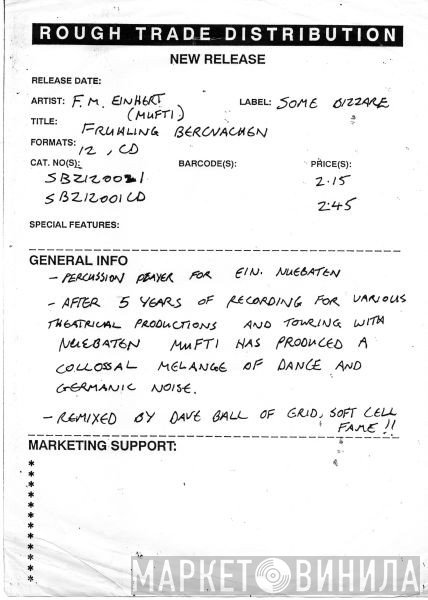 ROUGH TRADE DISTRIBUTION
NEW RELEASE
RELEASE DATE:
ARTIST: F.M. EINHERT (MUFTI)
LABEL: SOME BIZZARE
TITLE: FRUHLING BERCNACHEN
FORMATS: 12, CD
CAT. NO(S): BARCODE(S): PRICE(S):
SBZ12001 2.15
SBZ12001CD 2:45
SPECIAL FEATURES:
GENERAL INFO
- PERCUSSION PLAYER FOR EIN. NUEBATEN
- AFTER 5 YEARS OF RECORDING FOR VARIOUS
THEATRICAL PRODUCTIONS AND TOURING WITH
NUEBATEN MUFTI HAS PRODUCED A
COLLOSSAL MELANGE OF DANCE AND
GERMANIC NOISE.
- REMIXED BY DAVE BALL OF GRID, SOFT CELL
FAME!!
MARKETING SUPPORT:
*
*
*
*
*
*
*
*
*
*
*
*
МАРКЕТ ВИНИЛА